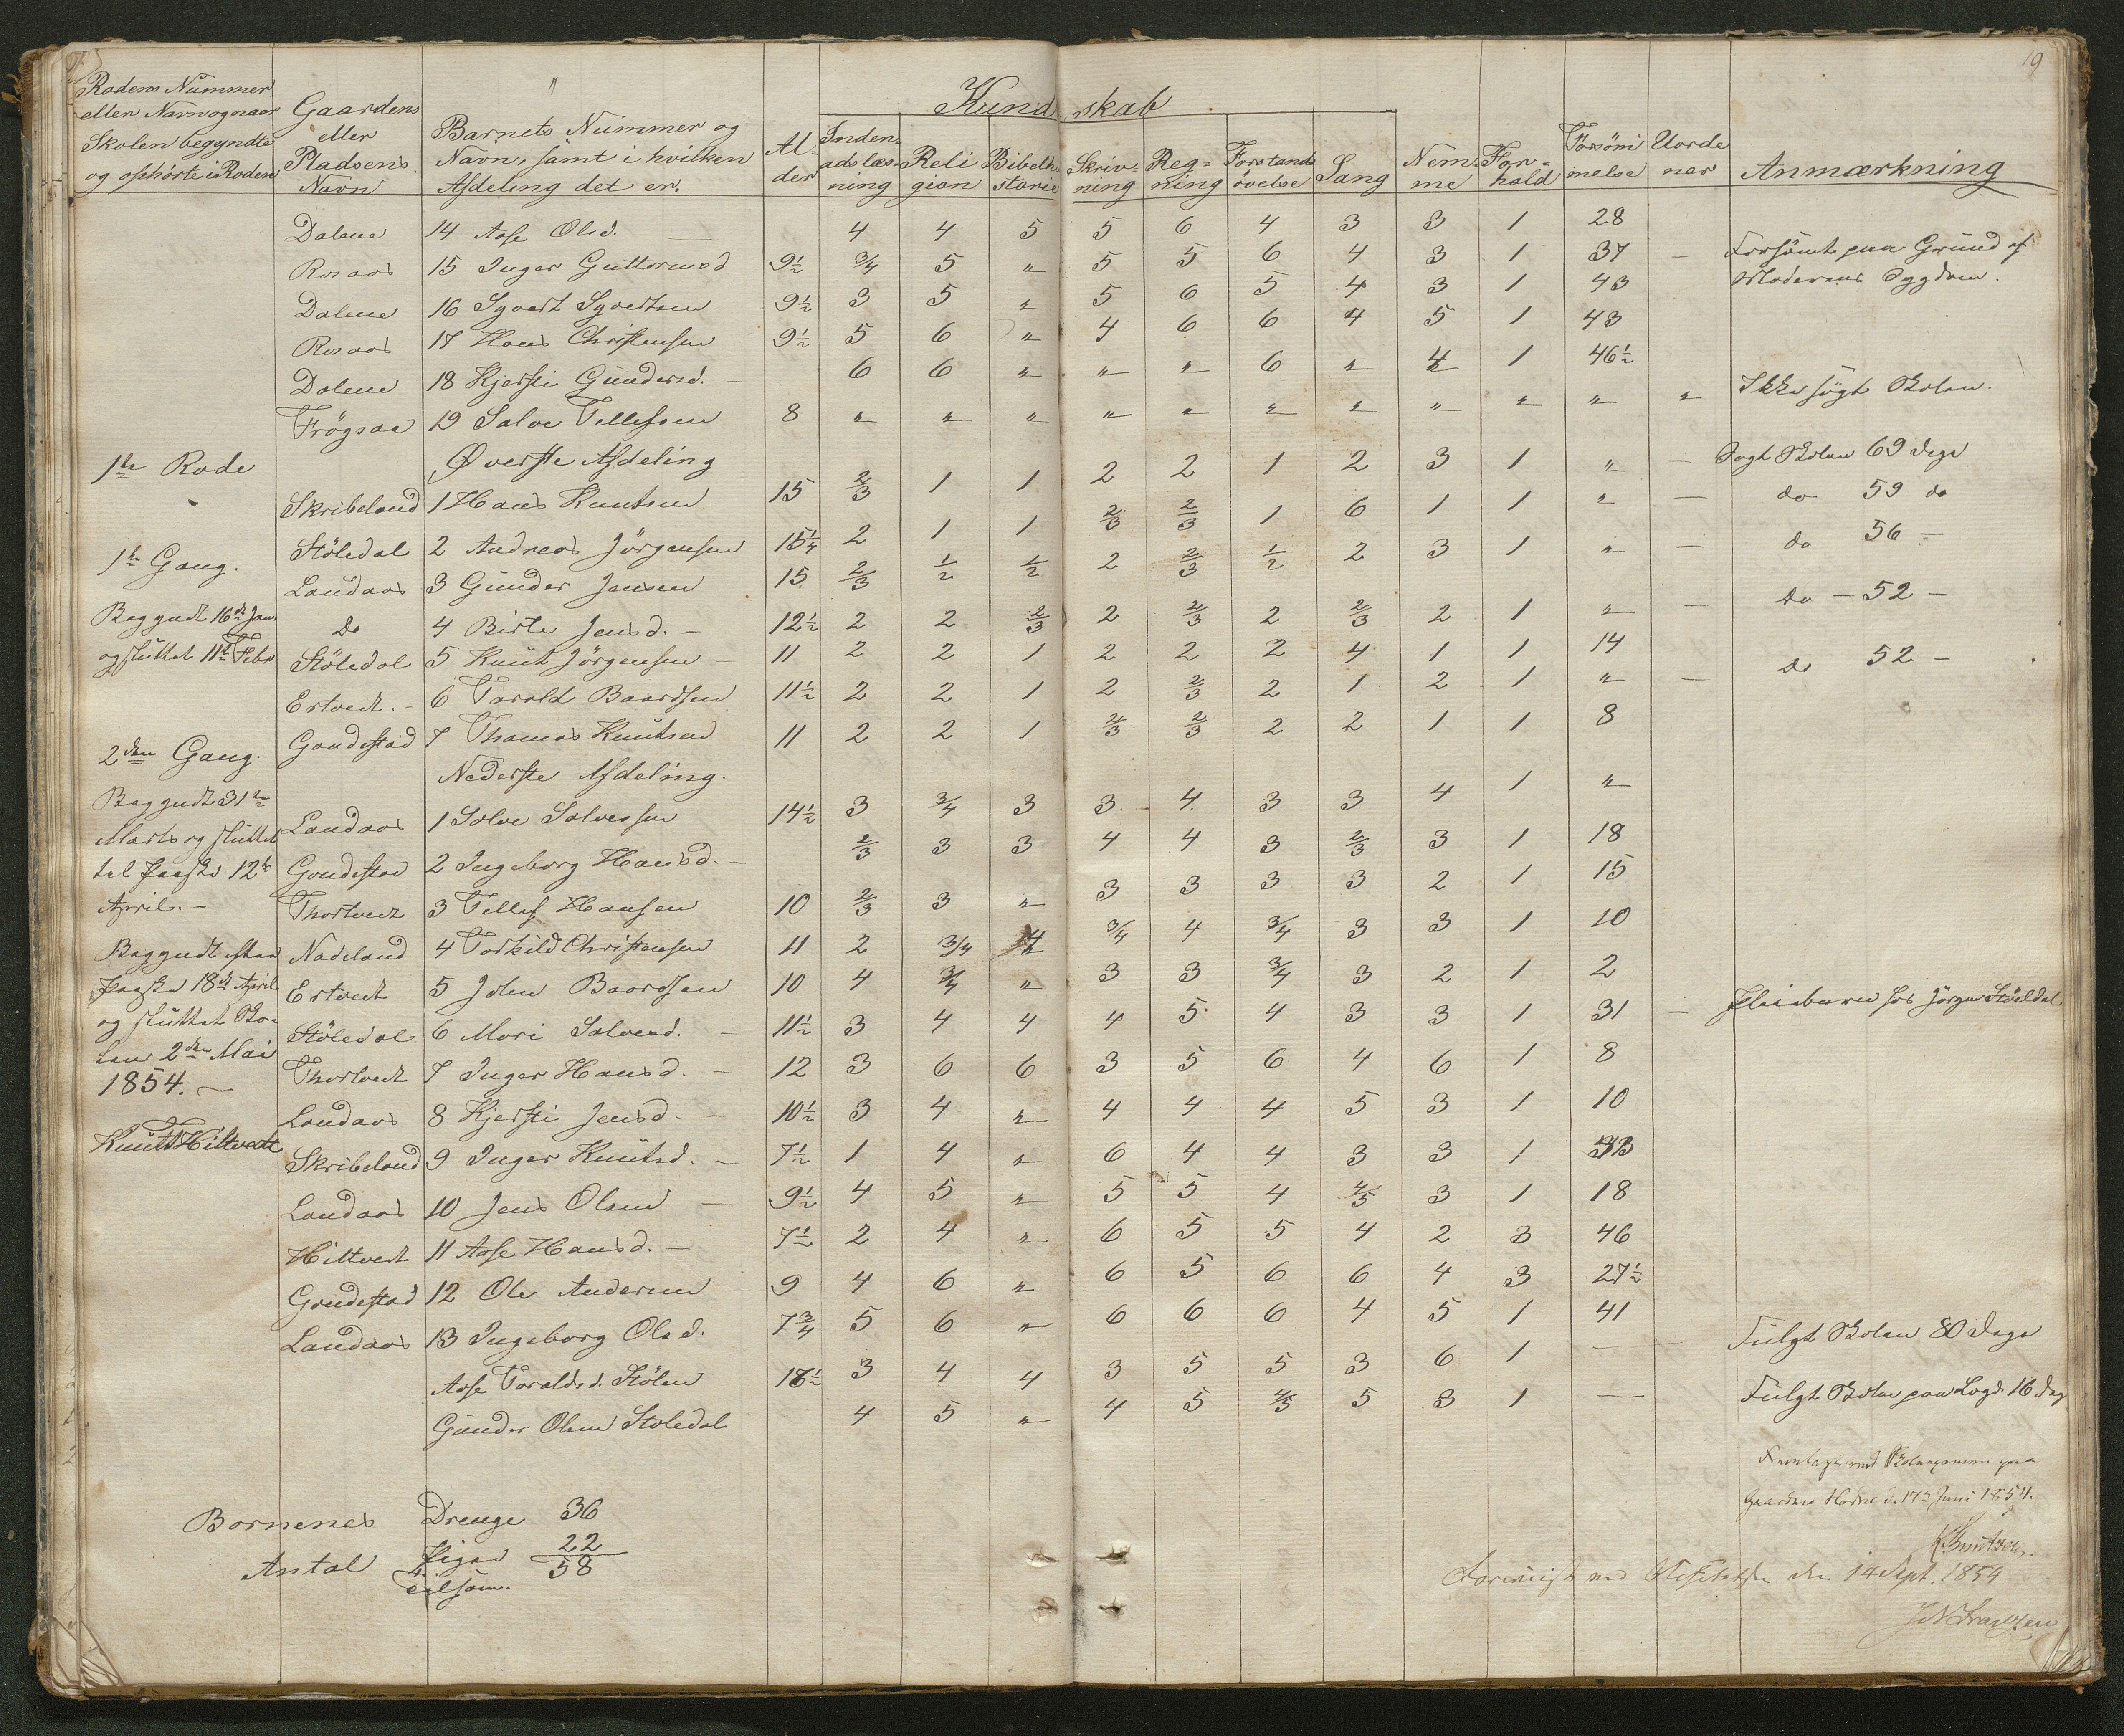 19
Kundskab
Rodens Nummer eller Navn og naar Skolen begyndte og ophörte i Roden | Gaardens eller Pladsens Navn | Barnets Nummer og Navn, samt i hvilken Afdeling det er. | Alder | Indenadslæsning | Religion | Bibelhistorie | Skrivning | Regning | Forstandsövelse | Sang | Nemme | Forhold | Forsömmelse | Uordener | Anmærkning
Dalene 14 Aase Olsd. 4 4 5 5 6 4 3 3 1 28
Rosaas 15 Inger Guttormsd 9½ 3/4 5 " 5 5 6 4 3 1 37 — Forsömt paa Grund af
Moderens Sygdom.
Dalene 16 Syvert Syvertsen 9½ 3 5 " 5 6 5 4 3 1 43
Rosaas 17 Hans Christensen 9½ 5 6 " 4 6 6 4 5 1 43
Dalene 18 Kjersti Gundersd. — 6 6 " " " 6 " 4 1 46½
Frögsaa 19 Salve Tellefsen 8 " " " " " " " " " " " Ikke sögt Skolen.
1te Rode
Øverste Afdeling
Skribeland 1 Hans Knutsen 15 2/3 1 1 2 2 1 2 3 1 " — Sögt Skolen 69 Dage
1te Gang.
Stöledal 2 Andreas Jörgensen 15¼ 2 1 1 2/3 2/3 1 6 1 1 " — do 59 do
Landaas 3 Gunder Jensen 15 2/3 1/2 1/2 2 2/3 1/2 2 3 1 " — do 56 —
Begyndt 16de Jan.
Do 4 Birte Jensd. — 12½ 2 2 2/3 2 2/3 2 2/3 2 1 " — do — 52 —
og sluttet 11te Febr
Stöledal 5 Knut Jörgensen — 11 2 2 1 2 2 2 4 1 1 14
Ertvedt. — 6 Tarald Baardsen 11½ 2 2 1 2 2/3 2 1 2 1 " — do 52 —
2den Gang.
Gondestad 7 Thomas Knutsen 11 2 2 1 2/3 2/3 2 2 1 1 8
Nederste Afdeling.
Begyndt 31te
Landaas 1 Salve Salvessen 14½ 3 3/4 3 3 4 3 3 4 1 "
Marts og sluttet
Gondestad 2 Ingeborg Hansd. — 2/3 3 3 4 4 3 2/3 3 1 18
til Paaske 12te
April. —
Thortvedt 3 Tellef Hansen 10 2/3 3 " 3 3 3 3 2 1 15
Begyndt efter
Nadeland 4 Torkild Christensen 11 2 3/4 4 3/4 4 3/4 3 3 1 10
Paaske 18de April
Ertvedt 5 John Baardsen 10 4 3/4 " 3 3 3/4 3 2 1 2
og sluttet Sko-
Stöledal 6 Mari Salvesd. — 11½ 3 4 4 4 5 4 3 3 1 31 — Pleiebarn hos Jörgen Stöeldal
len 2den Mai
1854. —
Thortvedt 7 Inger Hansd. — 12 3 6 6 3 5 6 4 6 1 8
Landaas 8 Kjersti Jensd. — 10½ 3 4 " 4 4 4 5 3 1 10
Knut T Hiltvedt
Skribeland 9 Inger Knutsd. — 7½ 1 4 " 6 4 4 3 3 1
Landaas 10 Jens Olsen — 9½ 4 5 " 5 5 4 4/5 3 1 18
Hiltvedt 11 Aase Hansd. — 7½ 2 4 " 6 5 5 4 2 3 46
Gondestad 12 Ole Andersen 9 4 6 " 6 5 6 6 4 3 27½
Landaas 13 Ingeborg Olsd. 7¾ 5 6 " 6 6 6 4 5 1 41
Aase Taraldsd. Stölen 3 4 4 3 5 5 3 6 1 — — Fulgt Skolen 80 Dage
Gunder Olsen Stoledal 4 5 " 4 5 4/5 5 3 1 — Fulgt Skolen paa Lægd. 16 Dag
Fremlagt ved Skoleexamen paa
Gaarden d. 17de Juni 1854.
Knutzen.
Börnenes Antal Drenge 36
Piger 22
tilsam. 58
ved Visitatsen den 14 Sept. 1854
J N Frantzen